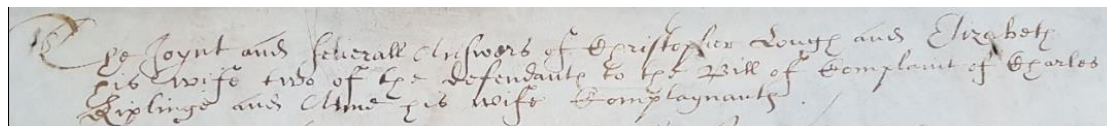 The Joynt and severall Answers of Christopher Lough and Elizabeth
his wife two of the defendants to the Bill of Complaint of Charles
Kiplinge and Anne his wife Complaynants.